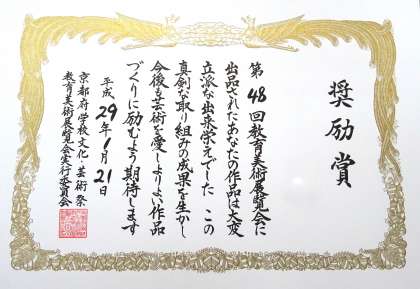 奨励賞
第48回教育美術展覧会に
出品されたあなたの作品は大変
立派な出来栄えでした この
真剣な取り組みの成果を生かし
今後も芸術を愛しよりよい作品
づくりに励むよう期待します
平成29年1月21日
京都府学校文化・芸術祭
教育美術展覧会実行委員会